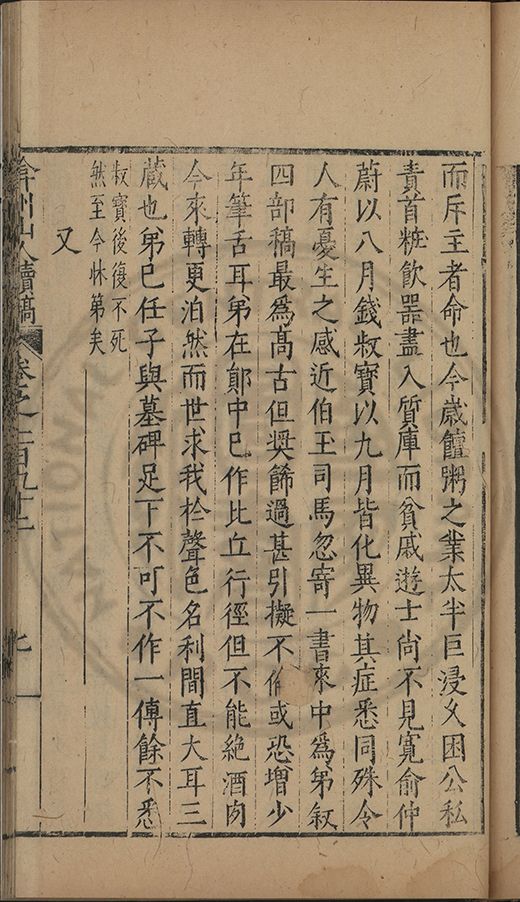 而斥主者命也今歲饘粥之業太半巨浸又困公私
責首粧飲器盡入質庫而貧戚遊士尚不見寬俞仲
蔚以八月錢叔寶以九月皆化異物其症悉同殊令
人有憂生之感近伯王司馬忽寄一書來中為弟敘
四部稿最為高古但奬餙過甚引擬不倫或恐增少
年筆舌耳弟在鄖中已作比丘行徑但不能絶酒肉
今來轉更泊然而世求我於聲色名利間直大耳三
藏也弟已任子與墓碑足下不可不作一傳餘不悉
叔寶後復不死
然至今牀第矣
又
弇州山人續稿
卷之一百九十二
七